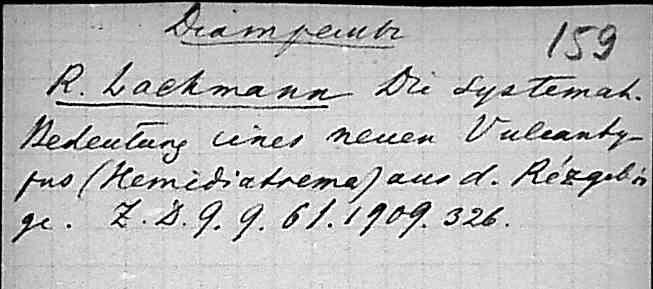 159
R. Lachmann Die Systemat.
Bedeutung eines neuen Vulcanty-
pus (Hemidiatrema) aus d. Rézgebir
ge. Z. D. g. g. 61. 1909. 326.